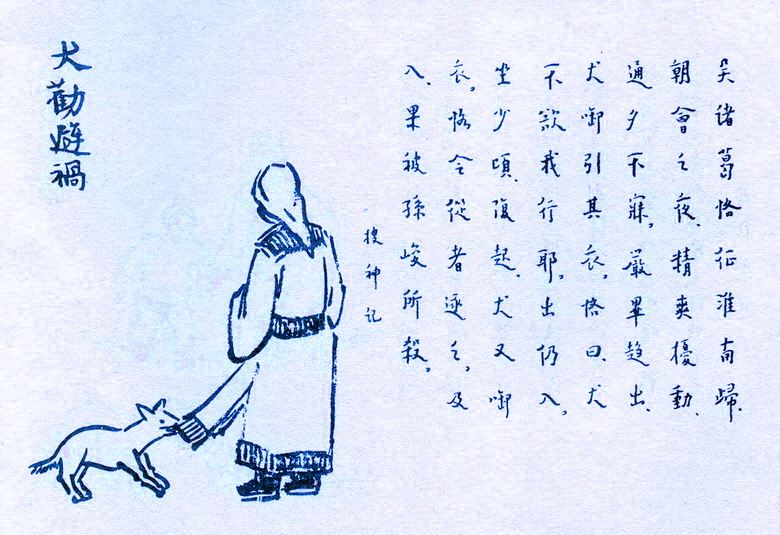 犬勸避禍
吳诸葛恪征淮南歸、
朝會之夜、精爽擾動、
通夕不寐。嚴畢趋出、
犬啣引其衣。恪曰、犬
不欲我行耶。出仍入。
坐少頃、復起。犬又啣
衣。恪令從者逐之。及
入、果被孫峻所殺。
搜神记